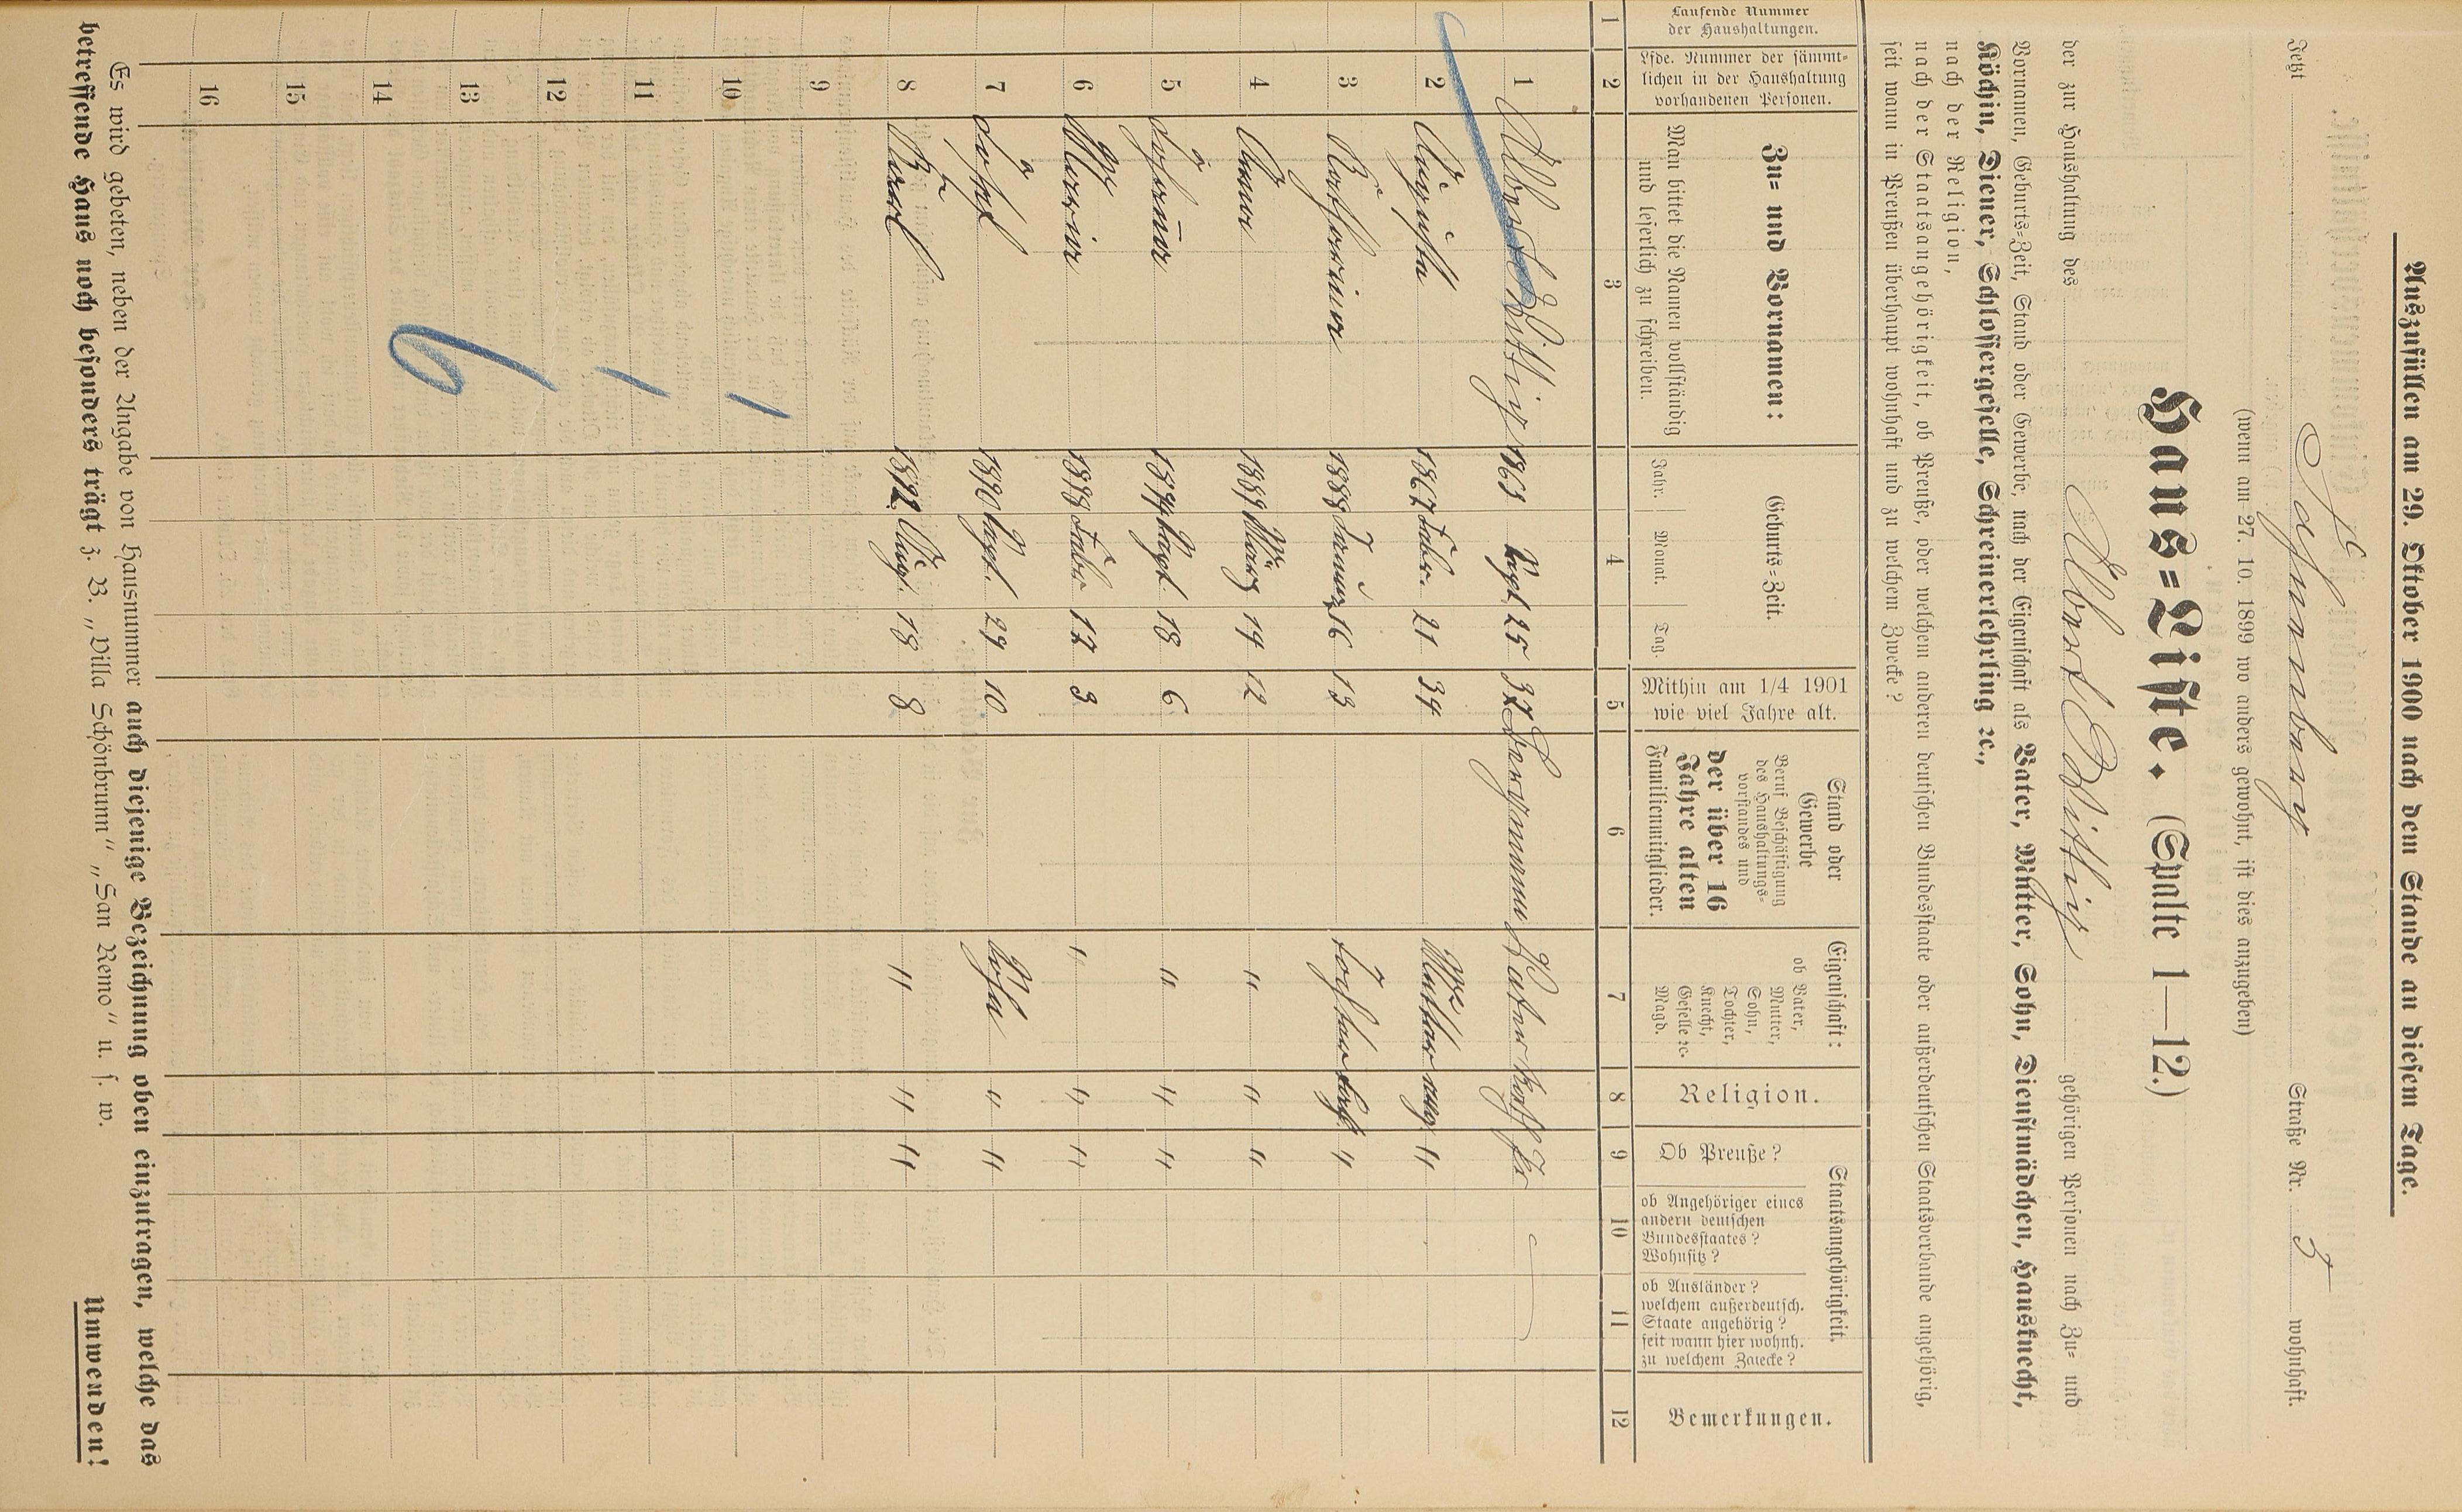 Auszufüllen am 29. Oktober 1900 nach dem Stande an diesem Tage.
Jetzt Schaumburg Straße Nr. 3 wohnhaft.
(wenn am 27. 10. 1899 wo anders gewohnt, ist dies anzugeben)
Haus=Liste. (Spalte 1—12.)
der zur Haushaltung des Albert Wittig gehörigen Personen nach Zu= und
Vornamen, Geburts=Zeit, Stand oder Gewerbe, nach der Eigenschaft als Vater, Mutter, Sohn, Dienstmädchen, Hausknecht,
Köchin, Diener, Schlossergeselle, Schreinerlehrling ꝛc.,
nach der Religion,
nach der Staatsangehörigkeit, ob Preuße, oder welchem anderen deutschen Bundesstaate oder außerdeutschen Staatsverbande angehörig,
seit wann in Preußen überhaupt wohnhaft und zu welchem Zwecke?
Laufende Nummer
der Haushaltungen.
Lfde. Nummer der sämmt=
lichen in der Haushaltung
vorhandenen Personen.
Zu= und Vornamen:
Man bittet die Namen vollständig
und leserlich zu schreiben.
Geburts=Zeit.
Jahr. Monat. Tag.
Mithin am 1/4 1901
wie viel Jahre alt.
Stand oder
Gewerbe
Beruf Beschäftigung
des Haushaltungs=
vorstandes und
der über 16
Jahre alten
Familienmitglieder.
Eigenschaft:
ob Vater,
Mutter,
Sohn,
Tochter,
Knecht,
Geselle ꝛc.
Magd.
Religion.
Staatsangehörigkeit.
Ob Preuße?
ob Angehöriger eines
andern deutschen
Bundesstaates?
Wohnsitz?
ob Ausländer?
welchem außerdeutsch.
Staate angehörig?
seit wann hier wohnh.
zu welchem Zwecke?
Bemerkungen.
1 2 3 4 5 6 7 8 9 10 11 12
1 Albert Wittig 1863 Sept. 25 37 Bergmann Vater kath. Pr
2 Augusta 1867 Febr. 21 34 Mutter evg. "
3 Katharina 1888 Januar 16 13 Tochter kath. "
4 Anna 1889 März 14 12 " " "
5 Johana 1894 Sept. 18 6 " " "
6 Maria 1898 Febr. 12 3 " " "
7 Josef 1890 Sept. 29 10 Sohn " "
8 Karl 1892 Aug. 18 8 " " "
9
10
11
12
13
14
15
16
1 1 6
Es wird gebeten, neben der Angabe von Hausnummer auch diejenige Bezeichnung oben einzutragen, welche das
betreffende Haus noch besonders trägt z. B. „Villa Schönbrunn“ „San Remo“ u. s. w.
Umwenden!